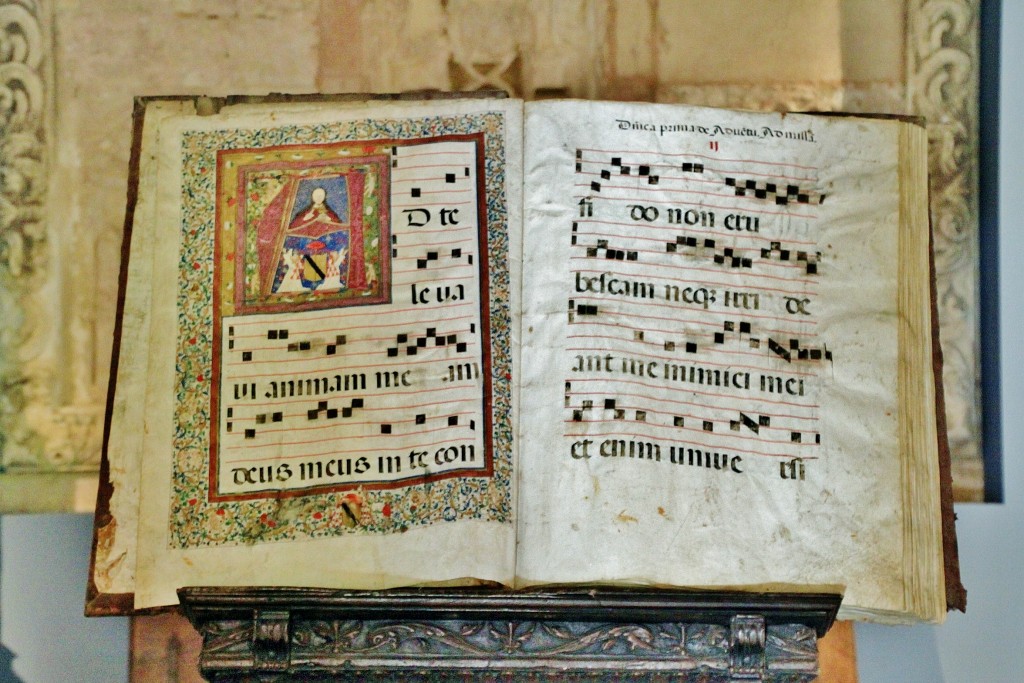 AD te
leva
vi animam me am
deus meus in te con
Dnica prima de Aduẽtu. Ad missã.
ij
fi do non eru
bescam neq; irri de
ant me inimici mei
et enim uniue rsi